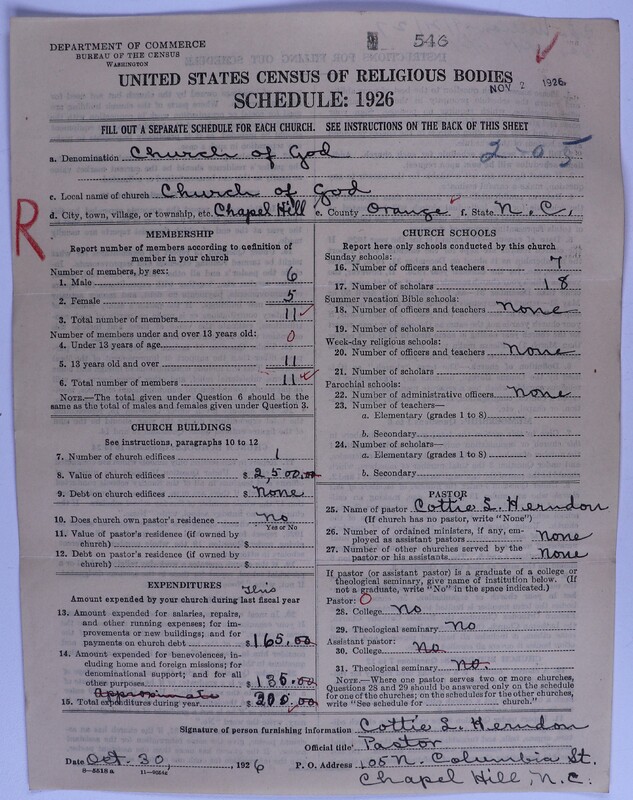 546
DEPARTMENT OF COMMERCE
BUREAU OF THE CENSUS
WASHINGTON
UNITED STATES CENSUS OF RELIGIOUS BODIES
NOV 2 1926
SCHEDULE: 1926
FILL OUT A SEPARATE SCHEDULE FOR EACH CHURCH. SEE INSTRUCTIONS ON THE BACK OF THIS SHEET
a. Denomination Church of God 2-05
c. Local name of church Church of God
d. City, town, village, or township, etc. Chapel Hill e. County Orange f. State N. C.
R
MEMBERSHIP
Report number of members according to definition of
member in your church
Number of members, by sex:
1. Male 6
2. Female 5
3. Total number of members 11
Number of members under and over 13 years old:
4. Under 13 years of age 0
5. 13 years old and over 11
6. Total number of members 11
NOTE.—The total given under Question 6 should be
same as the total of males and females given under Question 3.
CHURCH BUILDINGS
See instructions, paragraphs 10 to 12
7. Number of church edifices 1
8. Value of church edifices $ 2,500.00
9. Debt on church edifices $ None
10. Does church own pastor's residence No
Yes or No
11. Value of pastor's residence (if owned by
church) $
12. Debt on pastor's residence (if owned by
church) $
EXPENDITURES
This
Amount expended by your church during last fiscal year
13. Amount expended for salaries, repairs,
and other running expenses; for im-
provements or new buildings; and for
payments on church debt $ 165.00
14. Amount expended for benevolences, in-
cluding home and foreign missions; for
denominational support; and for all
other purposes $ 135.00
Approximate
15. Total expenditures during year $ 300.00
CHURCH SCHOOLS
Report here only schools conducted by this church
Sunday schools:
16. Number of officers and teachers 7
17. Number of scholars 18
Summer vacation Bible schools:
18. Number of officers and teachers None
19. Number of scholars
Week-day religious schools:
20. Number of officers and teachers None
21. Number of scholars
Parochial schools:
22. Number of administrative officers None
23. Number of teachers—
a. Elementary (grades 1 to 8)
b. Secondary
24. Number of scholars—
a. Elementary (grades 1 to 8)
b. Secondary
PASTOR
25. Name of pastor Cottie L. Herndon
(If church has no pastor, write "None")
26. Number of ordained ministers, if any, em-
ployed as assistant pastors None
27. Number of other churches served by the
pastor or his assistants None
If pastor (or assistant pastor) is a graduate of a college or
theological seminary, give name of institution below. (If
not a graduate, write "No" in the space indicated.)
Pastor: 0
28. College No
29. Theological seminary No
Assistant pastor:
30. College No
31. Theological seminary No.
NOTE.—Where one pastor serves two or more churches,
Questions 28 and 29 should be answered only on the schedule
for one of the churches; on the schedules for the other churches,
write "See schedule for church."
Signature of person furnishing information Cottie L. Herndon
Official title Pastor
Date Oct. 30, 1926 P. O. Address 105 N. Columbia St.
8—5518 a
Chapel Hill, N.C.